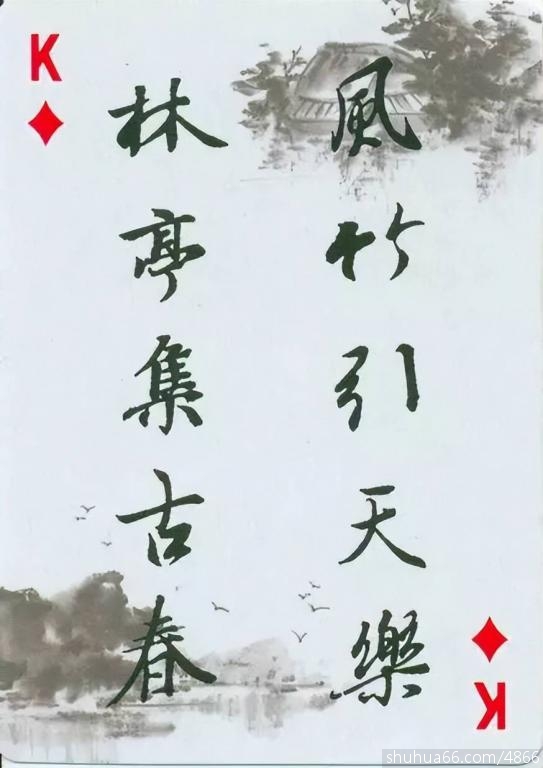 K
風竹引天樂
林亭集古春
K
shuhua66.com/4866